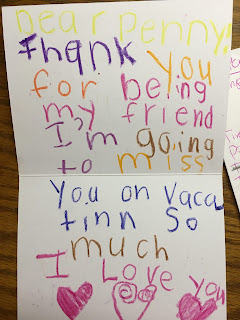 Dear Penny,
Thank you
for being
my friend
I'm going
to miss
You on Vaca
tinn So
much
I Love you